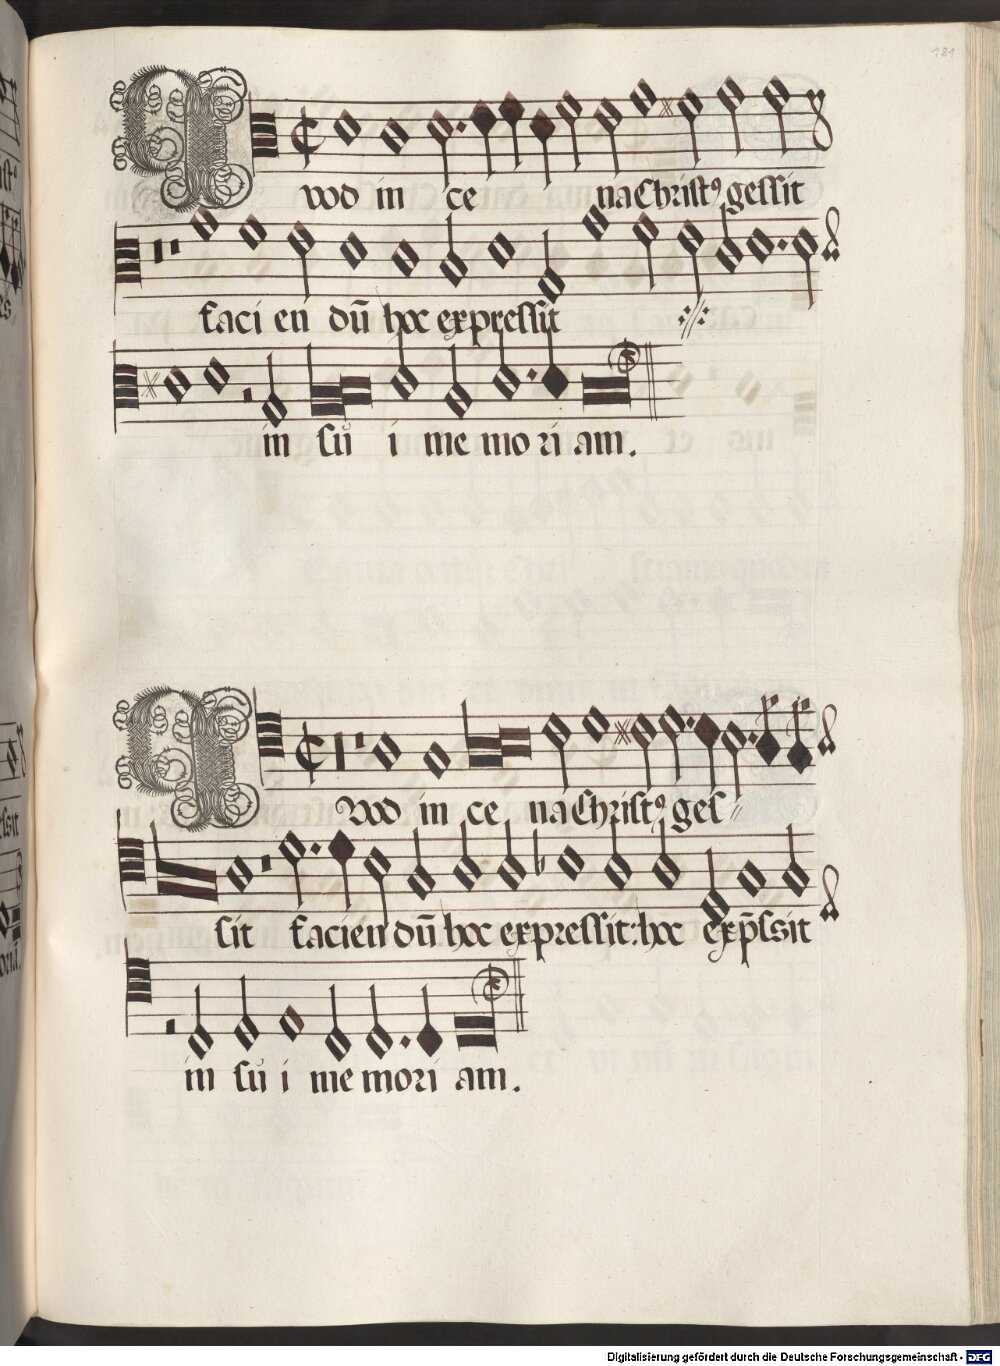 181
Quod in ce na Christꝰ gessit
faci en dũ hoc expressit
in su i me mo ri am.
Quod in ce na Christꝰ ges
sit facien dũ hoc expressit: hoc exp̃ssit
in su i me mori am.
Digitalisierung gefördert durch die Deutsche Forschungsgemeinschaft - DFG